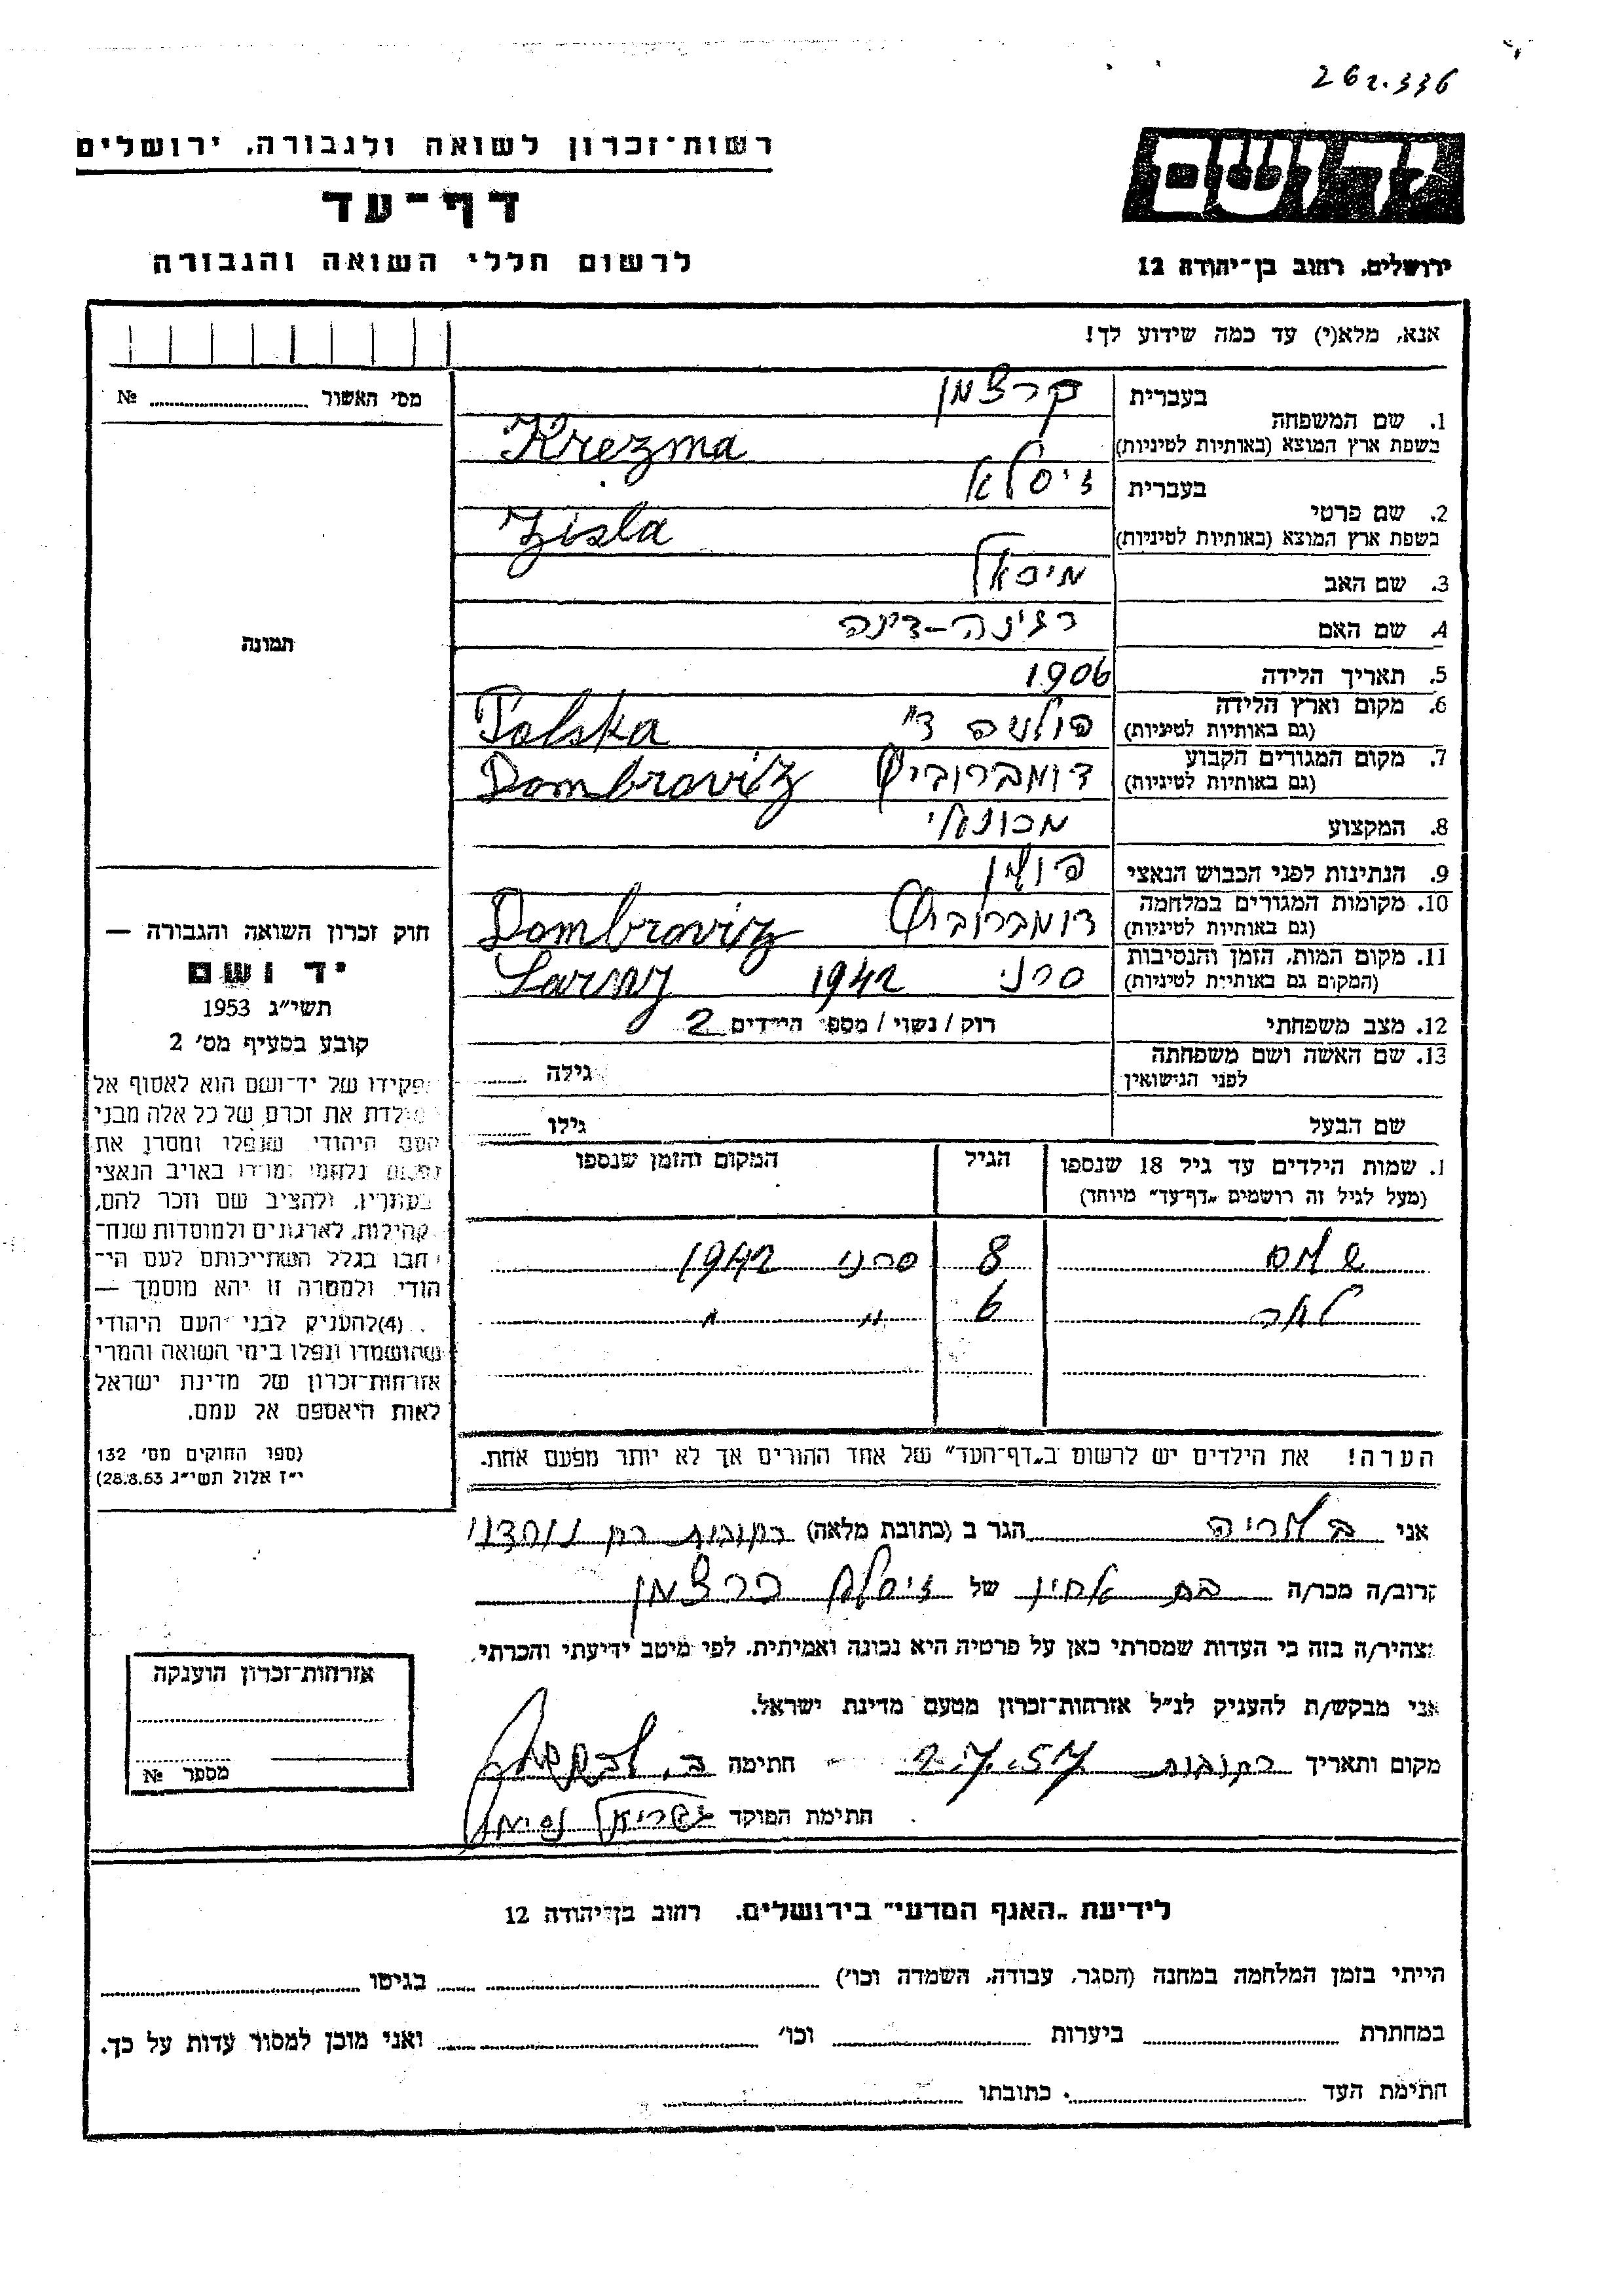 262.336
רשות־זכרון לשואה ולגבורה, ירושלים
יד ושם
דף־עד
לרשום חללי השואה והגבורה
ירושלים, רחוב בן־יהודה 12
אנא, מלא(י) עד כמה שידוע לך!
מס' האשור № 
תמונה
1. שם המשפחה בעברית קרצמן
בשפת ארץ המוצא (באותיות לטיניות) Krezma
2. שם פרטי בעברית זיסלא
בשפת ארץ המוצא (באותיות לטיניות) Zisla
3. שם האב מיכאל
4. שם האם רגינה-דינה
5. תאריך הלידה 1906
6. מקום וארץ הלידה (גם באותיות לטיניות) פולניה Polska
7. מקום המגורים הקבוע (גם באותיות לטיניות) דומברוביץ Dombroviz
8. המקצוע
9. הנתינות לפני הכבוש הנאצי פולין
10. מקומות המגורים במלחמה (גם באותיות לטיניות) דומברוביץ Dombroviz
11. מקום המות, הזמן והנסיבות (המקום גם באותיות לטיניות) סרני 1942 Sarny
12. מצב משפחתי רוק / נשוי / מספר הילדים 2
13. שם האשה ושם משפחתה לפני הנישואין גילה
שם הבעל גילו
1. שמות הילדים עד גיל 18 שנספו
(מעל לגיל זה רושמים „דף־עד" מיוחד)
הגיל
המקום והזמן שנספו
8 סרני 1942
6 " "
הערה! את הילדים יש לרשום ב„דף־העד" של אחד ההורים אך לא יותר מפעם אחת.
חוק זכרון השואה והגבורה —
יד ושם
תשי"ג 1953
קובע בסעיף מס' 2
תפקידו של יד־ושם הוא לאסוף אל
המולדת את זכרם של כל אלה מבני
העם היהודי, שנפלו ומסרו את
נפשם, נלחמו ומרדו באויב הנאצי
בעוזריו, ולהציב שם וזכר להם,
לקהילות, לארגונים ולמוסדות שנח־
רבו בגלל השתייכותם לעם הי־
הודי, ולמטרה זו יהא מוסמך —
(4)להעניק לבני העם היהודי
שהושמדו ונפלו בימי השואה והמרי
אזרחות־זכרון של מדינת ישראל
לאות היאספם אל עמם.
(ספר החוקים מס' 132
י"ז אלול תשי"ג 28.8.53)
אני הגר ב (כתובת מלאה) רחובות
קרוב/ה מכר/ה בת אחיו של זיסלה קרצמן
מצהיר/ה בזה כי העדות שמסרתי כאן על פרטיה היא נכונה ואמיתית, לפי מיטב ידיעתי והכרתי.
אני מבקש/ת להעניק לנ"ל אזרחות־זכרון מטעם מדינת ישראל.
מקום ותאריך רחובות 2.7.57 חתימה
חתימת הפוקד גבריאל
אזרחות־זכרון הוענקה
מספר №
לידיעת „האגף המדעי" בירושלים, רחוב בן־יהודה 12
הייתי בזמן המלחמה במחנה (הסגר, עבודה, השמדה וכו') בגיטו
במחתרת ביערות וכו' ואני מוכן למסור עדות על כך.
חתימת העד כתובתו